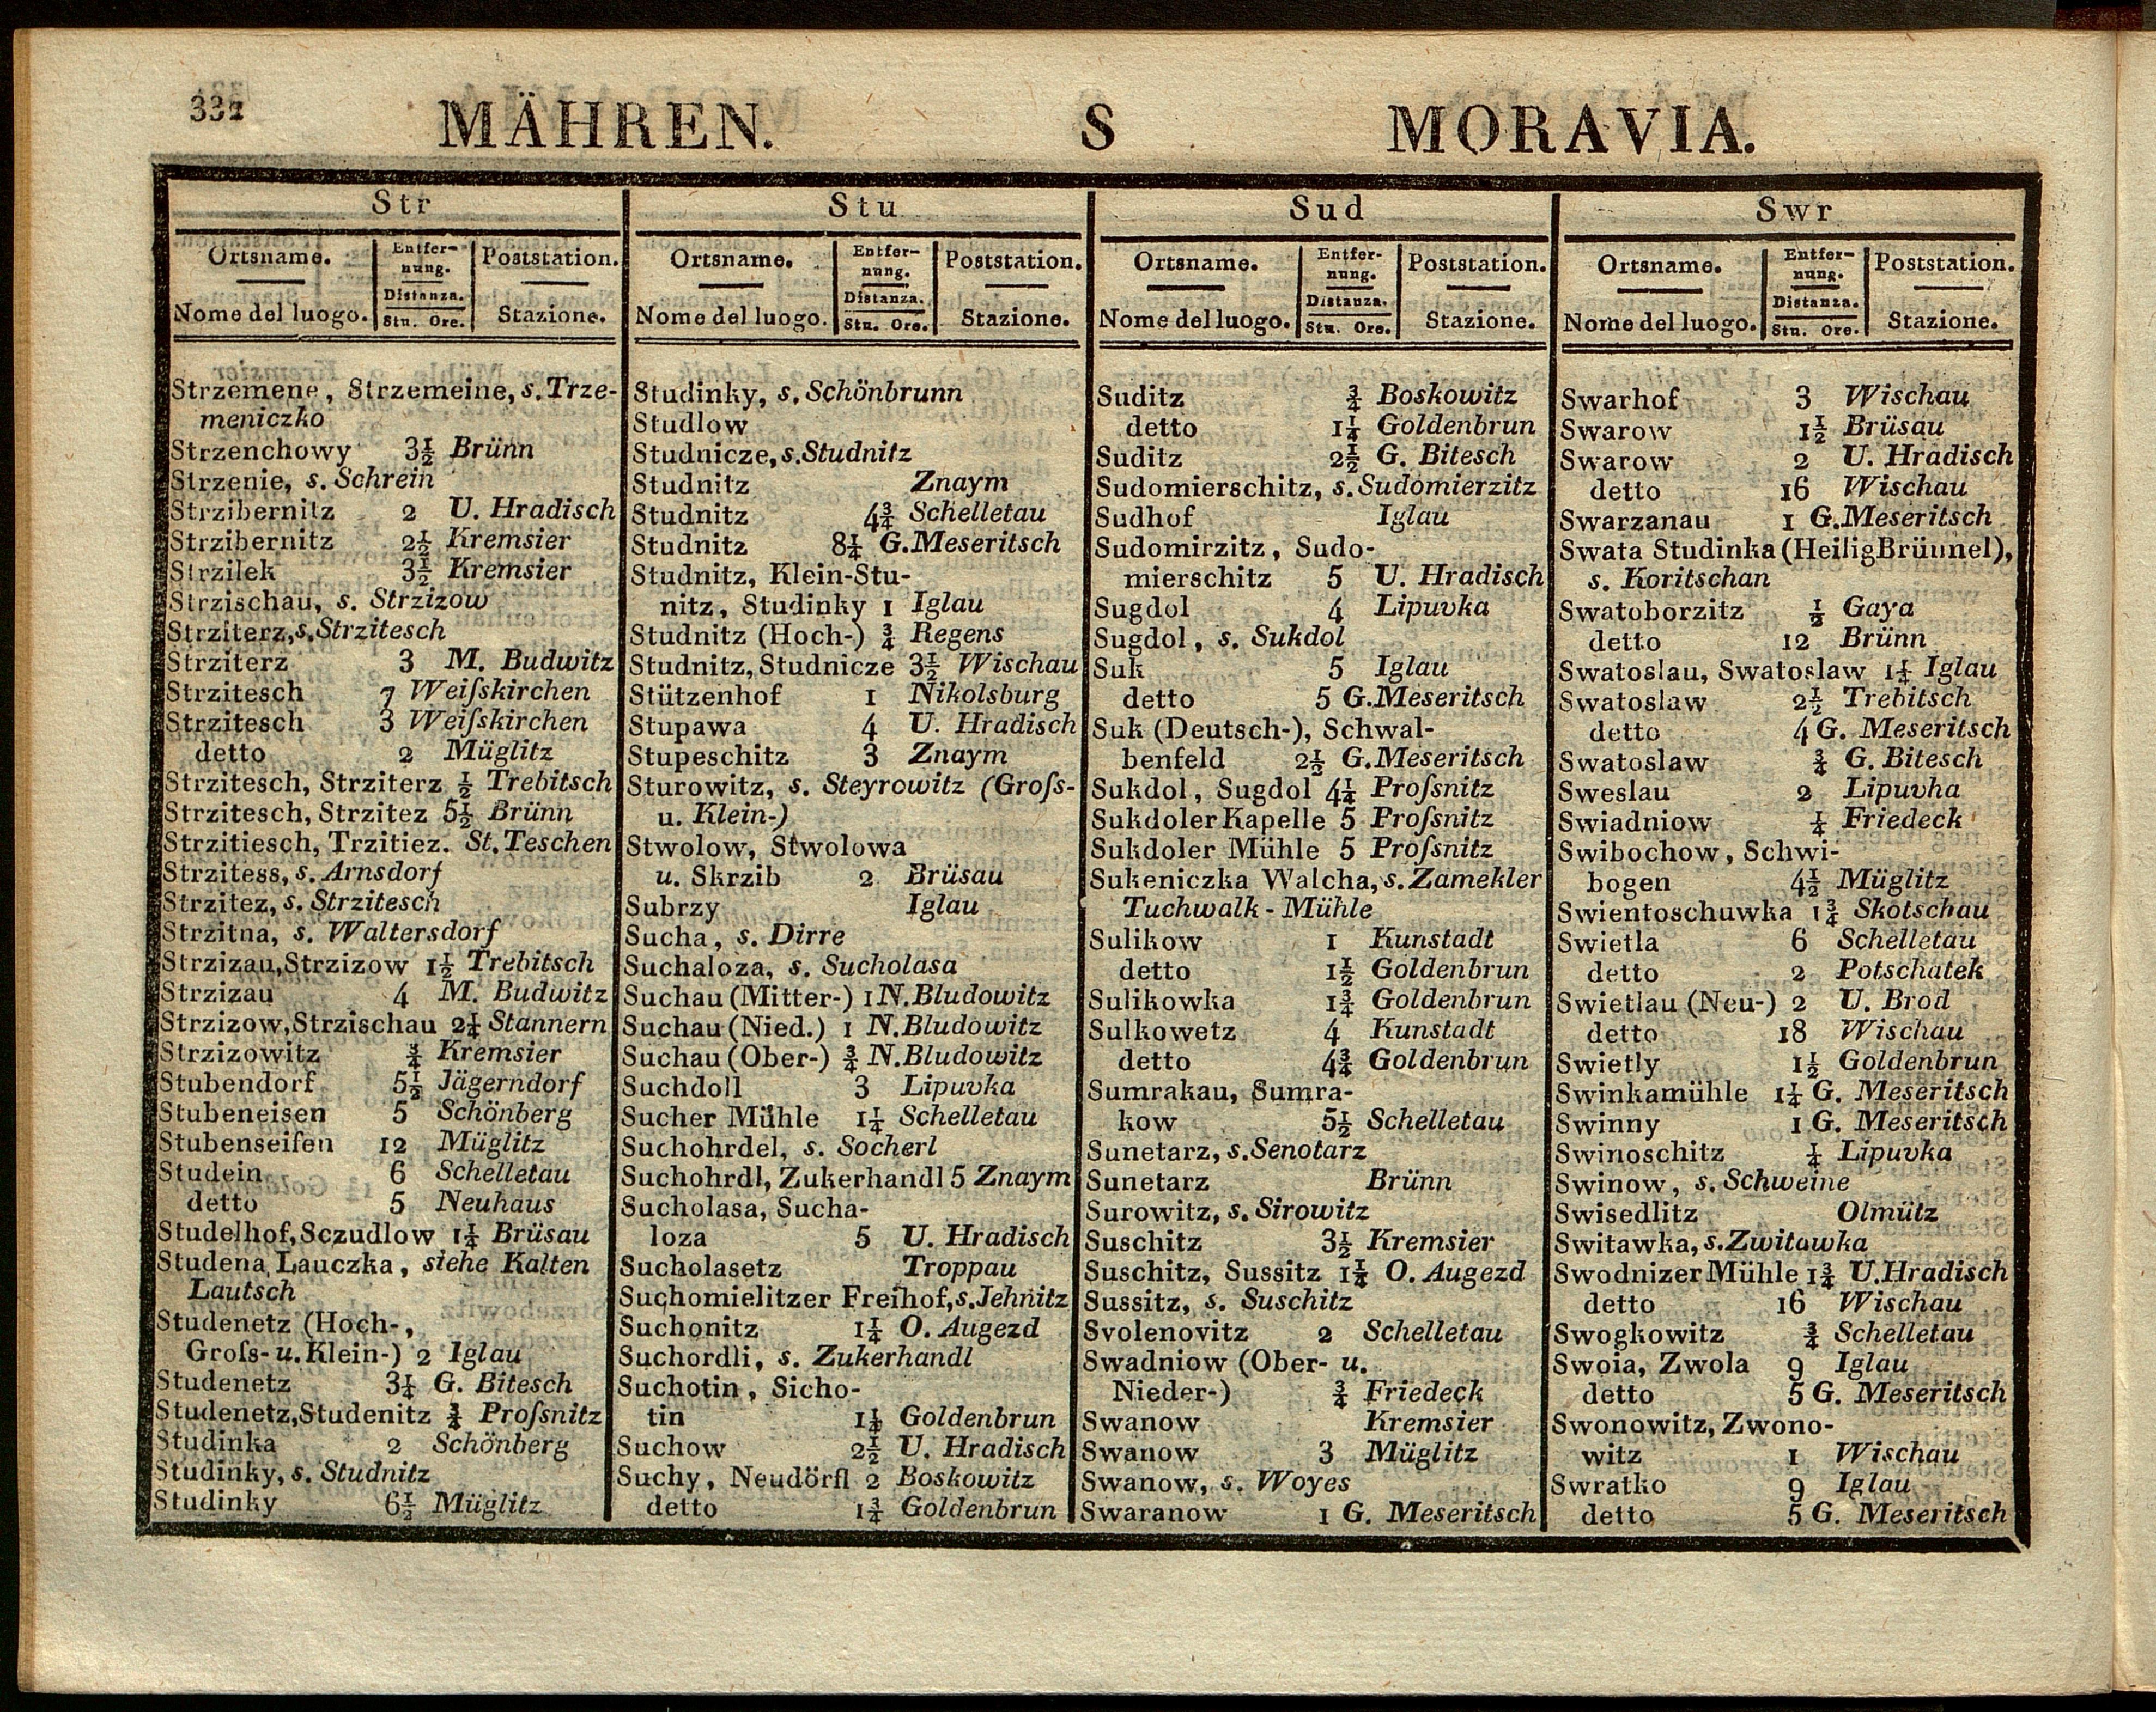 332
MÄHREN. S MORAVIA.
Str
Ortsname. Entfer- Poststation.
nung.
Distanza.
Nome del luogo. Stu. Ore. Stazione.
Strzemene, Strzemeine, s. Trze-
meniczko
Strzenchowy 3½ Brünn
Strzenie, s. Schrein
Strzibernitz 2 U. Hradisch
Strzibernitz 2½ Kremsier
Strzilek 3½ Kremsier
Strzischau, s. Strzizow
Strziterz, s. Strzitesch
Strziterz 3 M. Budwitz
Strzitesch 7 Weiſskirchen
Strzitesch 3 Weiſskirchen
detto 2 Müglitz
Strzitesch, Strziterz ½ Trebitsch
Strzitesch, Strzitez 5½ Brünn
Strzitiesch, Trzitiez. St. Teschen
Strzitess, s. Arnsdorf
Strzitez, s. Strzitesch
Strzitna, s. Waltersdorf
Strzizau, Strzizow 1½ Trebitsch
Strzizau 4 M. Budwitz
Strzizow, Strzischau 2¼ Stannern
Strzizowitz ¾ Kremsier
Stubendorf 5½ Jägerndorf
Stubeneisen 5 Schönberg
Stubenseifen 12 Müglitz
Studein 6 Schelletau
detto 5 Neuhaus
Studelhof, Sczudlow 1¼ Brüsau
Studena Lauczka, siehe Kalten
Lautsch
Studenetz (Hoch-,
Groſs- u. Klein-) 2 Iglau
Studenetz 3¼ G. Bitesch
Studenetz, Studenitz ¾ Proſsnitz
Studinka 2 Schönberg
Studinky, s. Studnitz
Studinky 6½ Müglitz
Stu
Ortsname. Entfer- Poststation.
nung.
Distanza.
Nome del luogo. Stu. Ore. Stazione.
Studinky, s. Schönbrunn
Studlow
Studnicze, s. Studnitz
Studnitz Znaym
Studnitz 4¾ Schelletau
Studnitz 8¼ G. Meseritsch
Studnitz, Klein-Stu-
nitz, Studinky 1 Iglau
Studnitz (Hoch-) ¾ Regens
Studnitz, Studnicze 3½ Wischau
Stützenhof 1 Nikolsburg
Stupawa 4 U. Hradisch
Stupeschitz 3 Znaym
Sturowitz, s. Steyrowitz (Groſs-
u. Klein-)
Stwolow, Stwolowa
u. Skrzib 2 Brüsau
Subrzy Iglau
Sucha, s. Dirre
Suchaloza, s. Sucholasa
Suchau (Mitter-) 1 N. Bludowitz
Suchau (Nied.) 1 N. Bludowitz
Suchau (Ober-) ¾ N. Bludowitz
Suchdoll 3 Lipuvka
Sucher Mühle 1¼ Schelletau
Suchohrdel, s. Socherl
Suchohrdl, Zukerhandl 5 Znaym
Sucholasa, Sucha-
loza 5 U. Hradisch
Sucholasetz Troppau
Suchomielitzer Freihof, s. Jehnitz
Suchonitz 1¼ O. Augezd
Suchordli, s. Zukerhandl
Suchotin, Sicho-
tin 1¼ Goldenbrun
Suchow 2½ U. Hradisch
Suchy, Neudörfl 2 Boskowitz
detto 1¾ Goldenbrun
Sud
Ortsname. Entfer- Poststation.
nung.
Distanza.
Nome del luogo. Stu. Ore. Stazione.
Suditz ¾ Boskowitz
detto 1¼ Goldenbrun
Suditz 2½ G. Bitesch
Sudomierschitz, s. Sudomierzitz
Sudhof Iglau
Sudomirzitz, Sudo-
mierschitz 5 U. Hradisch
Sugdol 4 Lipuvka
Sugdol, s. Sukdol
Suk 5 Iglau
detto 5 G. Meseritsch
Suk (Deutsch-), Schwal-
benfeld 2½ G. Meseritsch
Sukdol, Sugdol 4¼ Proſsnitz
Sukdoler Kapelle 5 Proſsnitz
Sukdoler Mühle 5 Proſsnitz
Sukeniczka Walcha, s. Zamekler
Tuchwalk-Mühle
Sulikow 1 Kunstadt
detto 1½ Goldenbrun
Sulikowka 1¾ Goldenbrun
Sulkowetz 4 Kunstadt
detto 4¾ Goldenbrun
Sumrakau, Sumra-
kow 5½ Schelletau
Sunetarz, s. Senotarz
Sunetarz Brünn
Surowitz, s. Sirowitz
Suschitz 3½ Kremsier
Suschitz, Sussitz 1¼ O. Augezd
Sussitz, s. Suschitz
Svolenovitz 2 Schelletau
Swadniow (Ober- u.
Nieder-) ¾ Friedeck
Swanow Kremsier
Swanow 3 Müglitz
Swanow, s. Woyes
Swaranow 1 G. Meseritsch
Swr
Ortsname. Entfer- Poststation.
nung.
Distanza.
Nome del luogo. Stu. Ore. Stazione.
Swarhof 3 Wischau
Swarow 1½ Brüsau
Swarow 2 U. Hradisch
detto 16 Wischau
Swarzanau 1 G. Meseritsch
Swata Studinka (Heilig Brünnel),
s. Koritschan
Swatoborzitz ½ Gaya
detto 12 Brünn
Swatoslau, Swatoslaw 1¼ Iglau
Swatoslaw 2½ Trebitsch
detto 4 G. Meseritsch
Swatoslaw ¾ G. Bitesch
Sweslau 2 Lipuvha
Swiadniow ¼ Friedeck
Swibochow, Schwi-
bogen 4½ Müglitz
Swientoschuwka 1¾ Skotschau
Swietla 6 Schelletau
detto 2 Potschatek
Swietlau (Neu-) 2 U. Brod
detto 18 Wischau
Swietly 1½ Goldenbrun
Swinkamühle 1¼ G. Meseritsch
Swinny 1 G. Meseritsch
Swinoschitz ¼ Lipuvka
Swinow, s. Schweine
Swisedlitz Olmütz
Switawka, s. Zwitawka
Swodnizer Mühle 1¾ U. Hradisch
detto 16 Wischau
Swogkowitz ¾ Schelletau
Swoia, Zwola 9 Iglau
detto 5 G. Meseritsch
Swonowitz, Zwono-
witz 1 Wischau
Swratko 9 Iglau
detto 5 G. Meseritsch